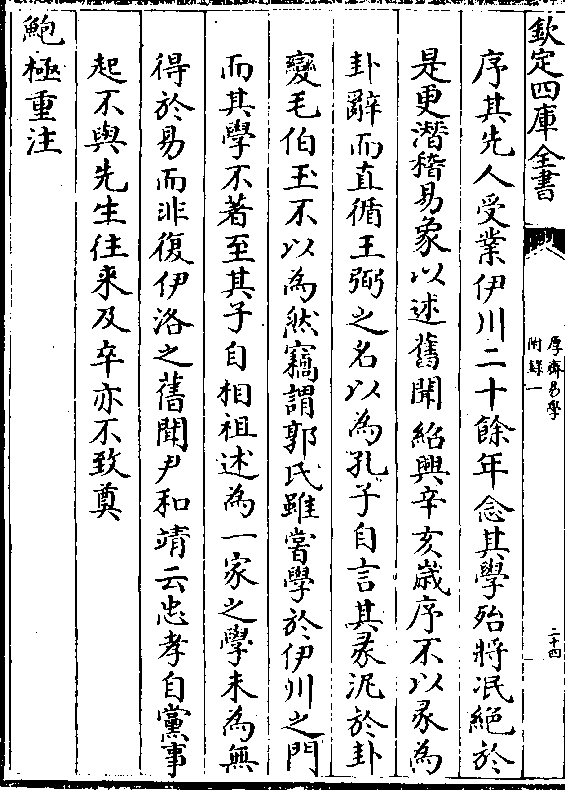 欽定四庫全書
厚齋易學
附錄一
二十四
序其先人受業伊川二十餘年念其學殆將泯絕於
是更潛稽易象以述舊聞紹興辛亥歲序不以彖為
卦辭而直循王弼之名以為孔子自言其彖泥於卦
變毛伯玉不以為然竊謂郭氏雖嘗學於伊川之門
而其學不著至其子自相祖述為一家之學未為無
得於易而非復伊洛之舊聞尹和靖云忠孝自黨事
起不與先生往來及卒亦不致奠
鮑極重注